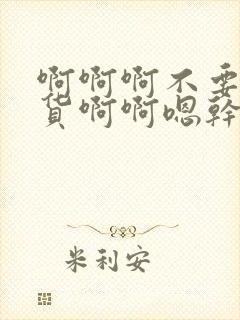 啊啊啊不要
货啊啊嗯幹
米利安